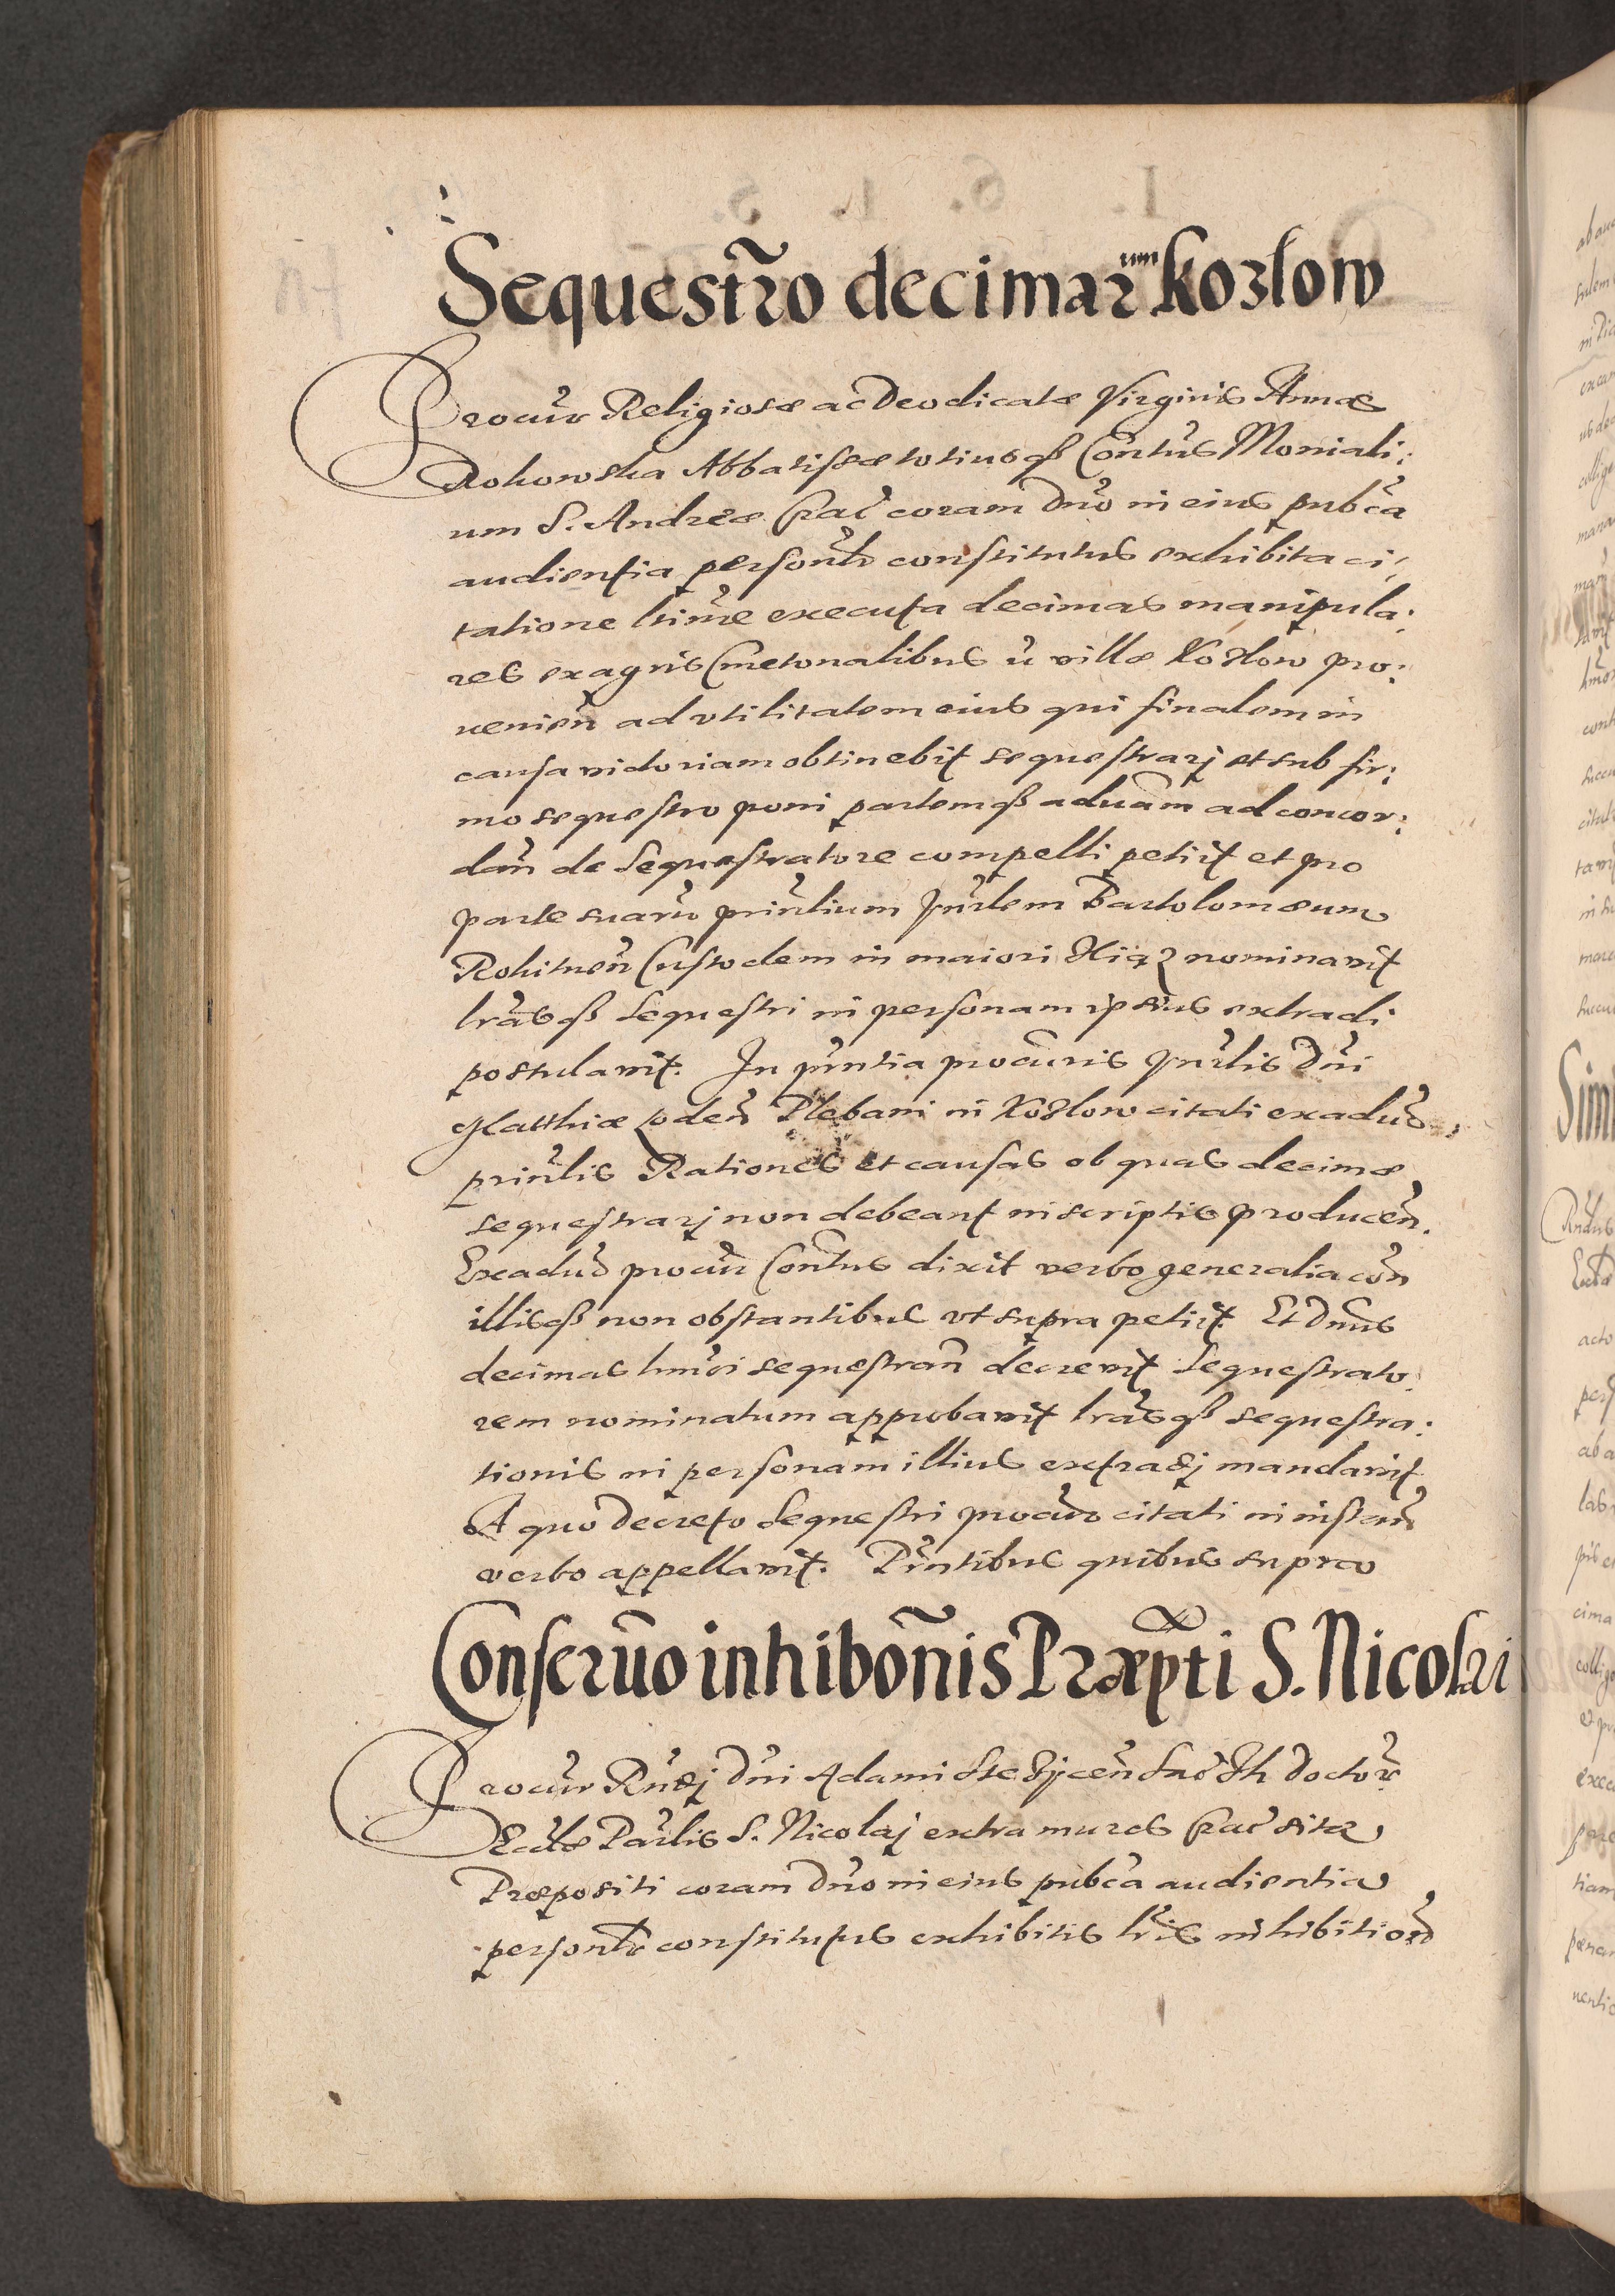 Sequestr̃o decimar̃um Kozlow
Procur̃ Religiosæ ac Deo dicatæ Virginis Annæ
Rokowska Abbatissæ totiusqȝ Contus Moniali:
um S. Andreæ Crac̃ coram Dño in eius pub̃ca
audientia personl̃r constitutus exhibita ci:
tatione ltim̃e executa decimas manipula:
res ex agris Cmetonalibus villæ Kozlow pro:
uenien̄ ad vtilitatem eius qui finalem in
causa victoriam obtinebit sequestrarj et sub fir:
mo sequestro poni partemqȝ aduam̃ ad concor:
dan̄ de Sequestratore compelli petiit et pro
parte suar̃ prinl̃ium Vn̄rlem Bartolomæum
Custodem in maiori nominauit
lr̃asqȝ Sequestri in personam ipsius extradi
postulauit. In pñtia procur̃is Vn̄rlis Dñi
Matthiæ Plebani in Kozlow citati ex aduõ
prinl̃is Rationes et causas ob quas decimæ
sequestrarj non debeant in scriptis producen̄.
Ex aduõ procur̃ Contus dixit verbo generalia con̄
illisqȝ non obstantibus vt supra petiit. Et Dñus
decimas hmõi sequestran̄ decreuit Sequestrato:
rem nominatum approbauit lr̃asqȝ sequestra:
tionis in personam illius extradj mandauit
A quo decreto Sequestri procur̃ citati in instan̄
verbo appellauit. Pñtibus quibus supra
Conseruo inhibõnis Præpti S. Nicolai
Procur̃ Rñdj Dñi Adami Sac̃ Th doctor̃
Eccl̃æ Par̃lis S. Nicolaj extra muros Crac̃ sitæ
Præpositi coram Dño in eius pub̃ca audientia
personl̃r constitutus exhibitis lr̃is inhibition̄